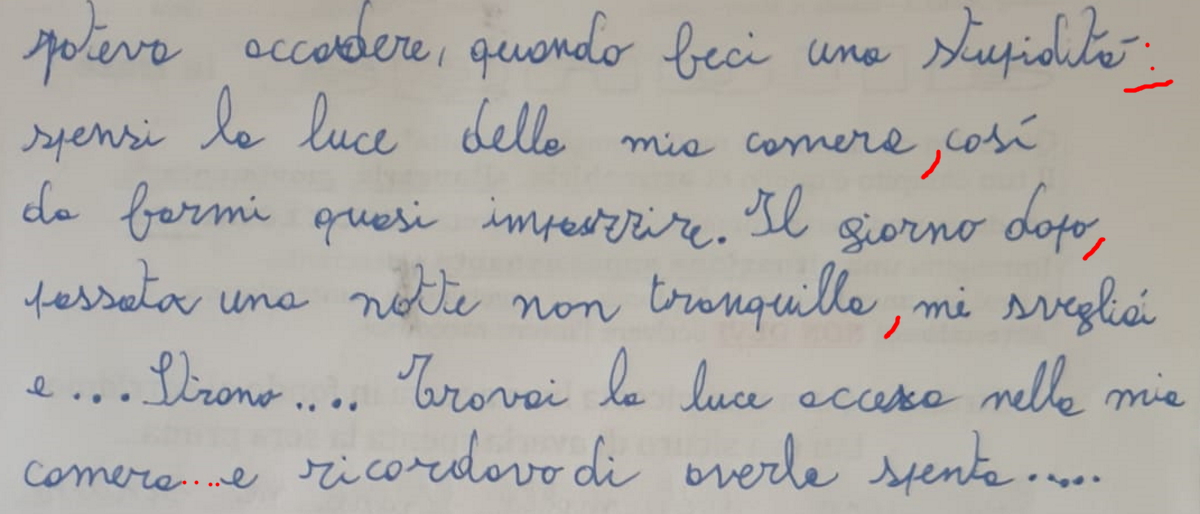 poteva accadere, quando feci una stupidità:
spensi la luce della mia camera, così
da farmi quasi impazzire. Il giorno dopo,
passata una notte non tranquilla, mi svegliai
e... Strano.... Trovai la luce accesa nella mia
camera....e ricordavo di averla spenta.....